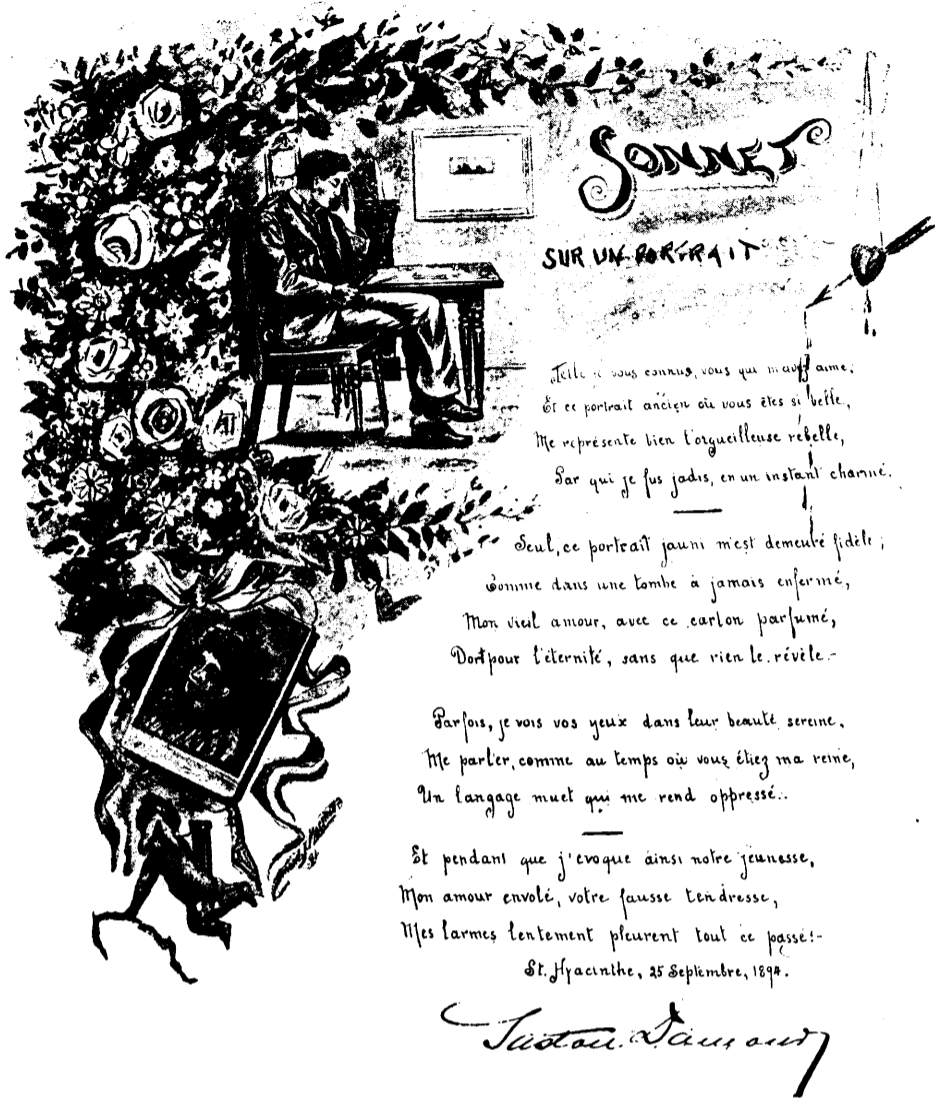 SONNET
SUR UN PORTRAIT
Telle vous connus, vous qui m'avez aimé,
Et ce portrait ancien où vous êtes si belle,
Me représente bien l'orgueilleuse rebelle,
Par qui je fus jadis, en un instant charmé.
Seul, ce portrait jauni m'est demeuré fidèle ;
Comme dans une tombe à jamais enfermé,
Mon vieil amour, avec ce carton parfumé,
Dort pour l'éternité, sans que rien le révèle.-
Parfois, je vois vos yeux dans leur beauté sereine,
Me parler, comme au temps où vous étiez ma reine,
Un langage muet qui me rend oppressé..
Et pendant que j'evoque ainsi notre jeunesse,
Mon amour envolé, votre fausse tendresse,
Mes larmes lentement pleurent tout ce passé!-
St. Hyacinthe, 25 Septembre, 1894.
Gaston